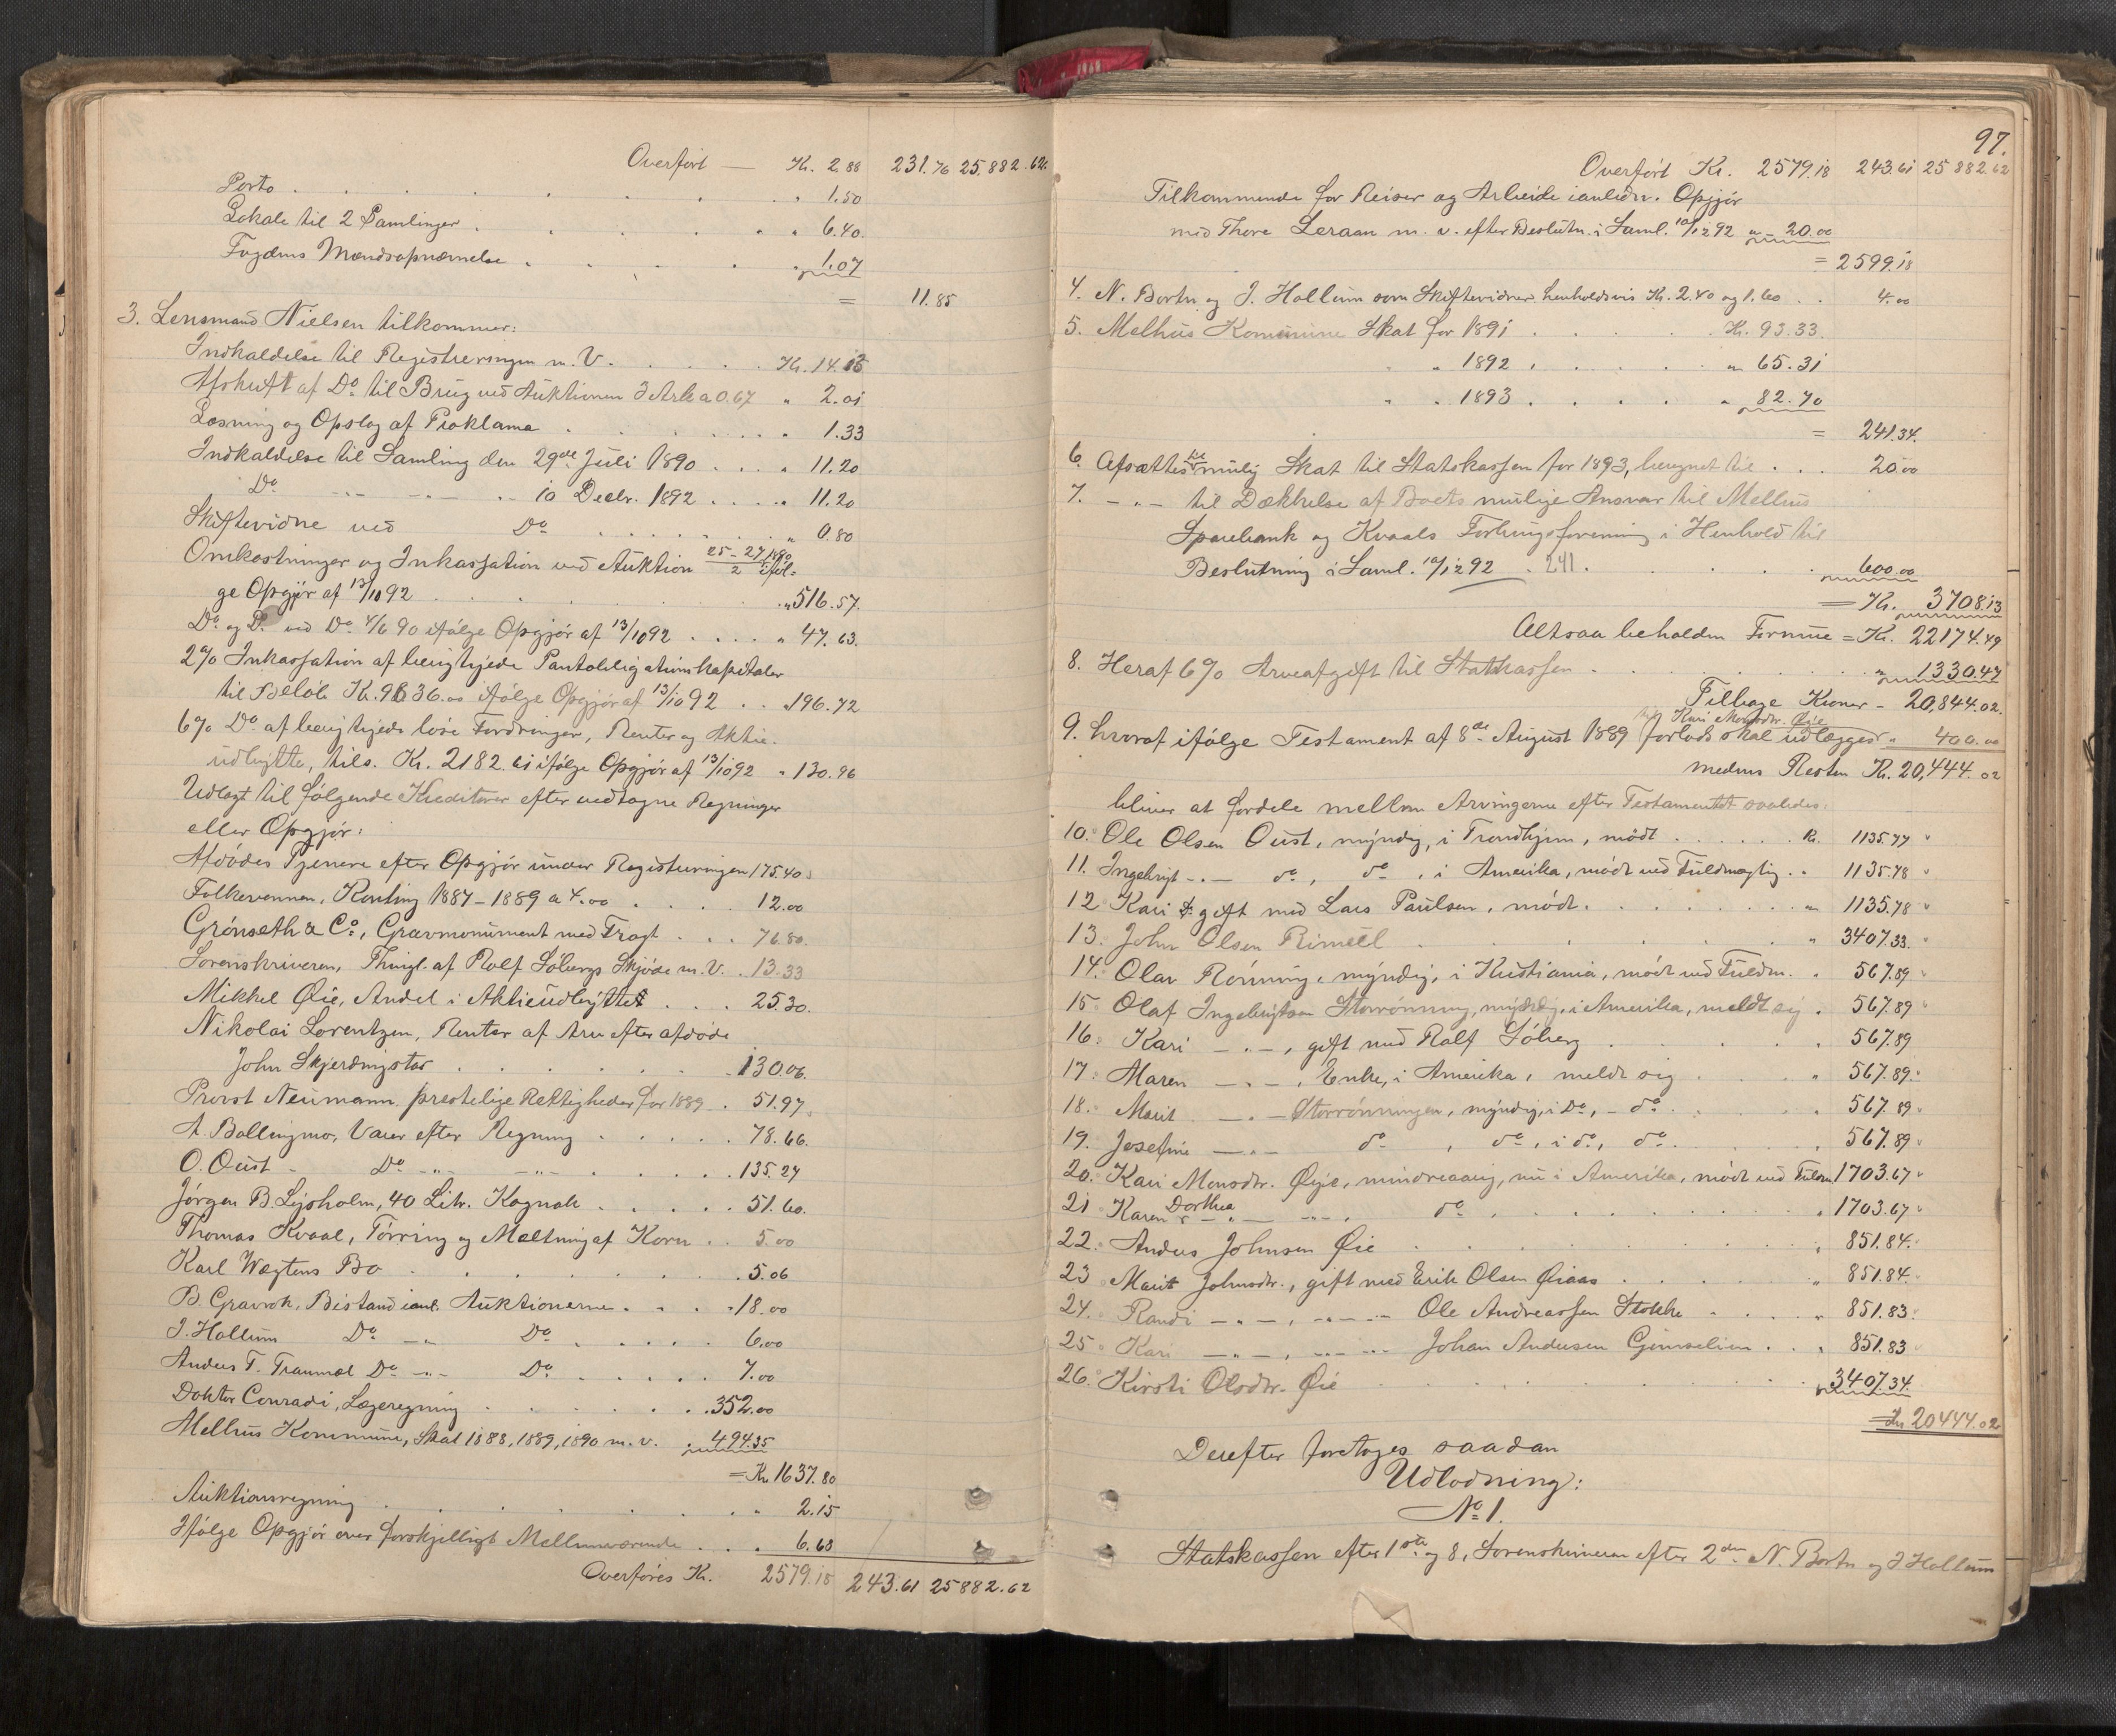 Overført — Kr. 2.88 231.76 25.882.62.
Porto . . . . . . . " 1.50
Lokale til 2 Samlinger . . . . " " 6.40.
Fogdens Mændsopnævnelse . . . . " 1.07
= 11.85
3. Lensmand Nielsen tilkommer:
Indkaldelse til Registreringen m. V. . . . . Kr. 14.13
Afskrift af Do til Brug ved Auktionen 3 Ark a 0.67 " 2.01
Læsning og Opslag af Proklama . . . . . . " 1.33
Indkaldelse til Samling den 29de Juli 1890 . . . . " 11.20
Do -"- -"- " 10 Decbr. 1892 . . . . " 11.20
Skiftevidne ved Do . . . . . . . " 0.80
Omkostninger og Inkassation ved Auktion 25-27/2 1890 iføl-
ge Opgjør af 13/10 92 . . . . . . . " 516.57.
Do og Do ved Do 4/6 90 ifølge Opgjør af 13/10 92 . . . . " 47.63.
2% Inkassation af berigtigede Pantobligationskapitaler
til Beløb Kr. 9836.00 ifølge Opgjør af 13/10 92 . . " 196.72
6% Do af berigtigede løse Fordringer, Renter og Aktie-
udbytte, tils. Kr. 2182.61 ifølge Opgjør af 13/10 92 " 130.96
Udlagt til følgende Kreditorer efter vedtagne Regninger
eller Opgjør:
Afdødes Tjenere efter Opgjør under Registreringen 175.40
Folkevennen, Konting 1887-1889 a 4.00 . . . . 12.00
Grønseth & Co, Gravmonument med Fragt . . . 76.80.
Sorenskriveren, Thingl. af Rolf Søbergs Skjøde m. V. . 13.33
Mikkel Øie, Andel i Aktieudbyttet . . . 25.30.
Nikolai Lorentzen, Renter af Arv efter afdøde
John Skjerdingstad . . . . . . . 130.06.
Provst Neumann prestelige Rettigheder for 1889 . 51.97
A. Bollingmo, Varer efter Regning . . . . . 78.66.
O. Oust - Do -"- -"- . . . . . 135.27
Jørgen B. Lysholm, 40 Litr. Kognak . . . . . 51.60.
Thomas Kvaal, Tørring og Maltning af Korn . . 5.00
Karl Wægtens Bo . . . . . . . 5.06
B. Gravrok, Bistand ianl. Auktionerne . . . " 18.00
J. Hollum Do -"- Do . . . . . 6.00
Anders T. Traumæl Do -"- Do . . . . . 7.00
Doktor Conradi, Lægeregning . . . . . . 352.00
Melhus Kommune, Skat 1888, 1889, 1890 m. v. . 494.35
= Kr 1637.80
Auktionsregning . . . . . . " 2.15
Ifølge Opgjør over forskjelligt Mellemværende . . . 6.68
Overføres Kr. 2579.18 243.61 25882.62
97.
Overført Kr. 2579.18 243.61 25 882.62
Tilkommende for Reiser og Arbeide ianledn. Opgjør
med Thore Leraan m. v. efter Beslutn. i Saml. 10/12 92 " 20.00
= 2599.18
4. N. Bortn og J. Hollum som Skiftevidner henholdsvis Kr. 2.40 og 1.60 . . 4.00
5. Melhus Kommune Skat for 1891 . . . . . Kr. 93.33.
" " 1892 . . . . . " 65.31
" " 1893 . . . . . " 82.70
= 241.34.
6. Afsættes til mulig Skat til Statskassen for 1893, beregnet til . . . 20.00
7. -"- til Dækkelse af Boets mulige Ansvar til Melhus
Sparebank og Kvaals Forbrugsforening i Henhold til
Beslutning i Saml. 10/12 92 . 241 . . . . . 600.00
= Kr. 3708.13
Altsaa beholden Formue = Kr. 22174.49
8. Heraf 6% Arveafgift til Statskassen . . . . . . . " 1330.47
Tilbage Kroner - 20,844.02.
Kari Monsdtr. Øie
9. hvoraf ifølge Testament af 8de August 1889 forlods skal udlægges " 400.00
medens Resten Kr. 20,444.02
bliver at fordele mellem Arvingerne efter Testamentet saaledes:
10. Ole Olsen Oust, myndig, i Trondhjem, mødt . . . . . . Kr. 1135.77 "
11. Ingebrigt -"- do, do, i Amerika, mødt ved Fuldmægtig . . 1135.78 "
12 Kari gift med Lars Paulsen, mødt. . . . . . . . " 1135.78 "
13. John Olsen Rimell . . . . . . " 3407.33.
14. Olav Rønning, myndig, i Kristiania, mødt ved Fuldm. . 567.89 "
15 Olaf Ingebrigtsen Storrønning, myndig, i Amerika, meldt sig . 567.89 "
16. Kari -"-, gift med Rolf Søberg . . . . . 567.89
17. Maren -"-, Enke, i Amerika, meldt sig . . . . " 567.89.
18. Marit -"- Storrønningen, myndig, i Do, - do. . . . " 567.89 "
19. Josefine -"- do, do, i do, do. . . . . 567.89 "
20. Kari Monsdtr. Øyie, mindreaarig, nu i Amerika, mødt ved Fuldm 1703.67 "
21 Karen Dorthea -"- -"-, do . . . . . . . " 1703.67 "
22. Anders Johnsen Øie . . . . . . . " 851.84.
23 Marit Johnsdtr., gift med Erik Olsen Øiaas . . . . . " 851.84.
24. Randi -"-, -"- Ole Andreassen Stokke . . . . " 851.83.
25 Kari -"-, -"- Johan Andersen Gimselien . . . 851.83
26. Kirsti Olsdtr. Øie . . . . . . . . . 3407.34.
= Kr 20444.02
Derefter foretages saadan
Udlodning:
No 1.
Statskassen efter 1ste og 8, Sorenskriveren efter 2den N. Bortn og J Hollum